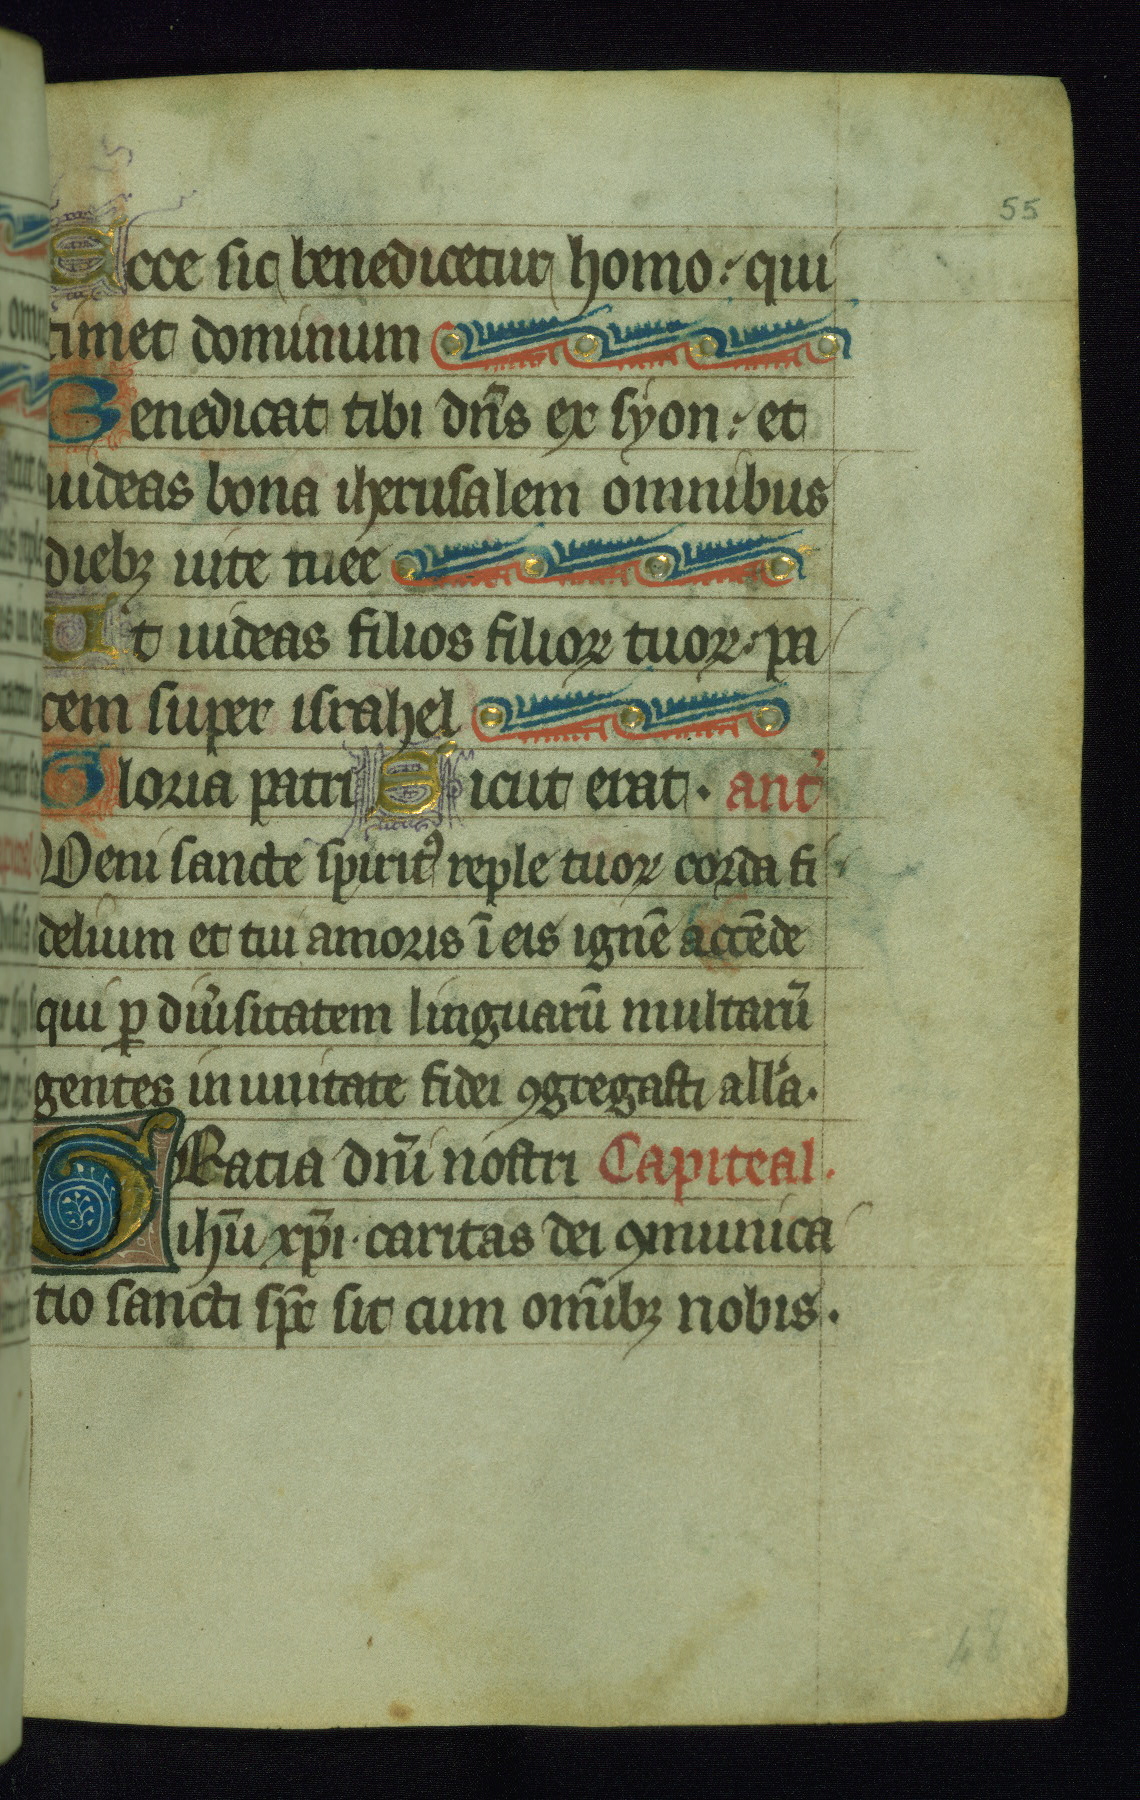 55
Ecce sic benedicetur homo: qui
timet dominum
Benedicat tibi dn̄s ex syon: et
uideas bona iherusalem omnibus
dieb; uite tuee
Et uideas filios filioꝝ tuoꝝ. pa
cem super israhel
Gloria patri Sicut erat. ant'
Veni sancte spiritꝰ reple tuoꝝ corda fi
delium et tui amoris ī eis ignē accēde
qui ꝑ diu͛sitatem linguarū multarū
gentes in unitate fidei ꝯgregasti all'a.
GRatia dn̄i nostri Capiteal.
ihū xp̄i. caritas dei ꝯmunica
tio sancti sp̄c sit cum om̄ib; nobis.
48